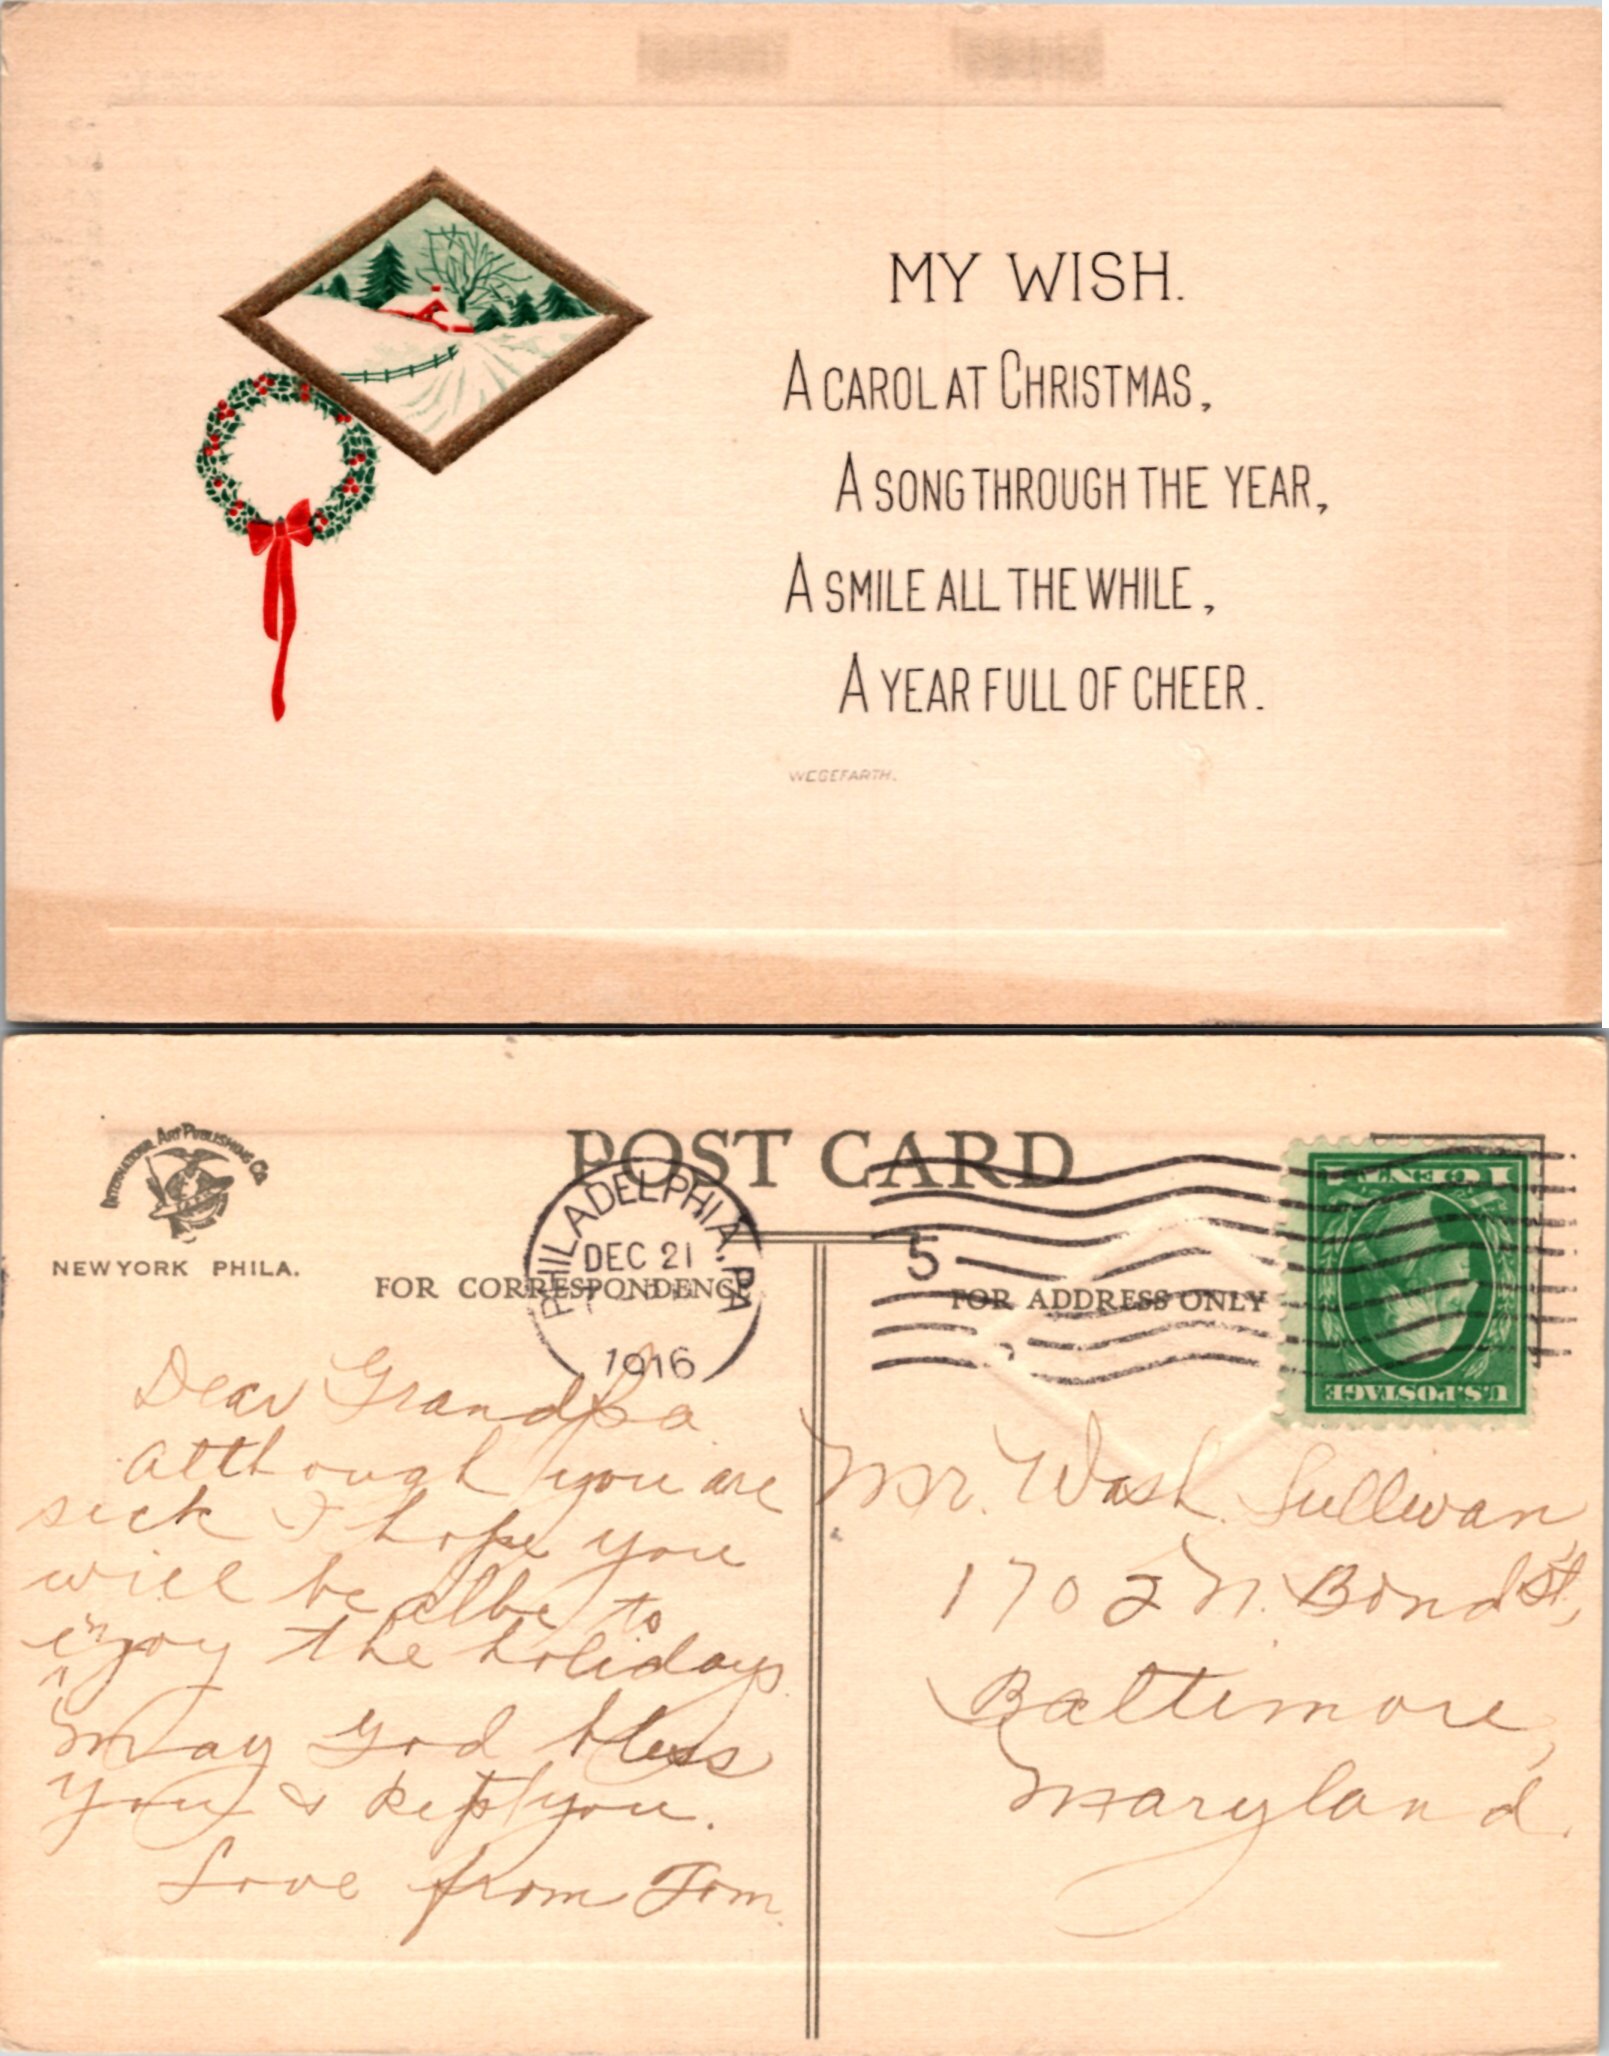 MY WISH.
A CAROL AT CHRISTMAS,
A SONG THROUGH THE YEAR,
A SMILE ALL THE WHILE,
A YEAR FULL OF CHEER.
WEGEFARTH.
INTERNATIONAL ART PUBLISHING CO.
NEW YORK PHILA.
POST CARD
FOR CORRESPONDENCE
PHILADELPHIA, PA
DEC 21
1916
5
FOR ADDRESS ONLY
1 CENT 1
U.S. POSTAGE
Dear Grandpa
Although you are
sick I hope you
will be albe to
enjoy the holidays.
May God bless
you & kept you.
Love from Tom.
Mr. Wash. Sullivan,
1702 N. Bond St,
Baltimore,
Maryland.